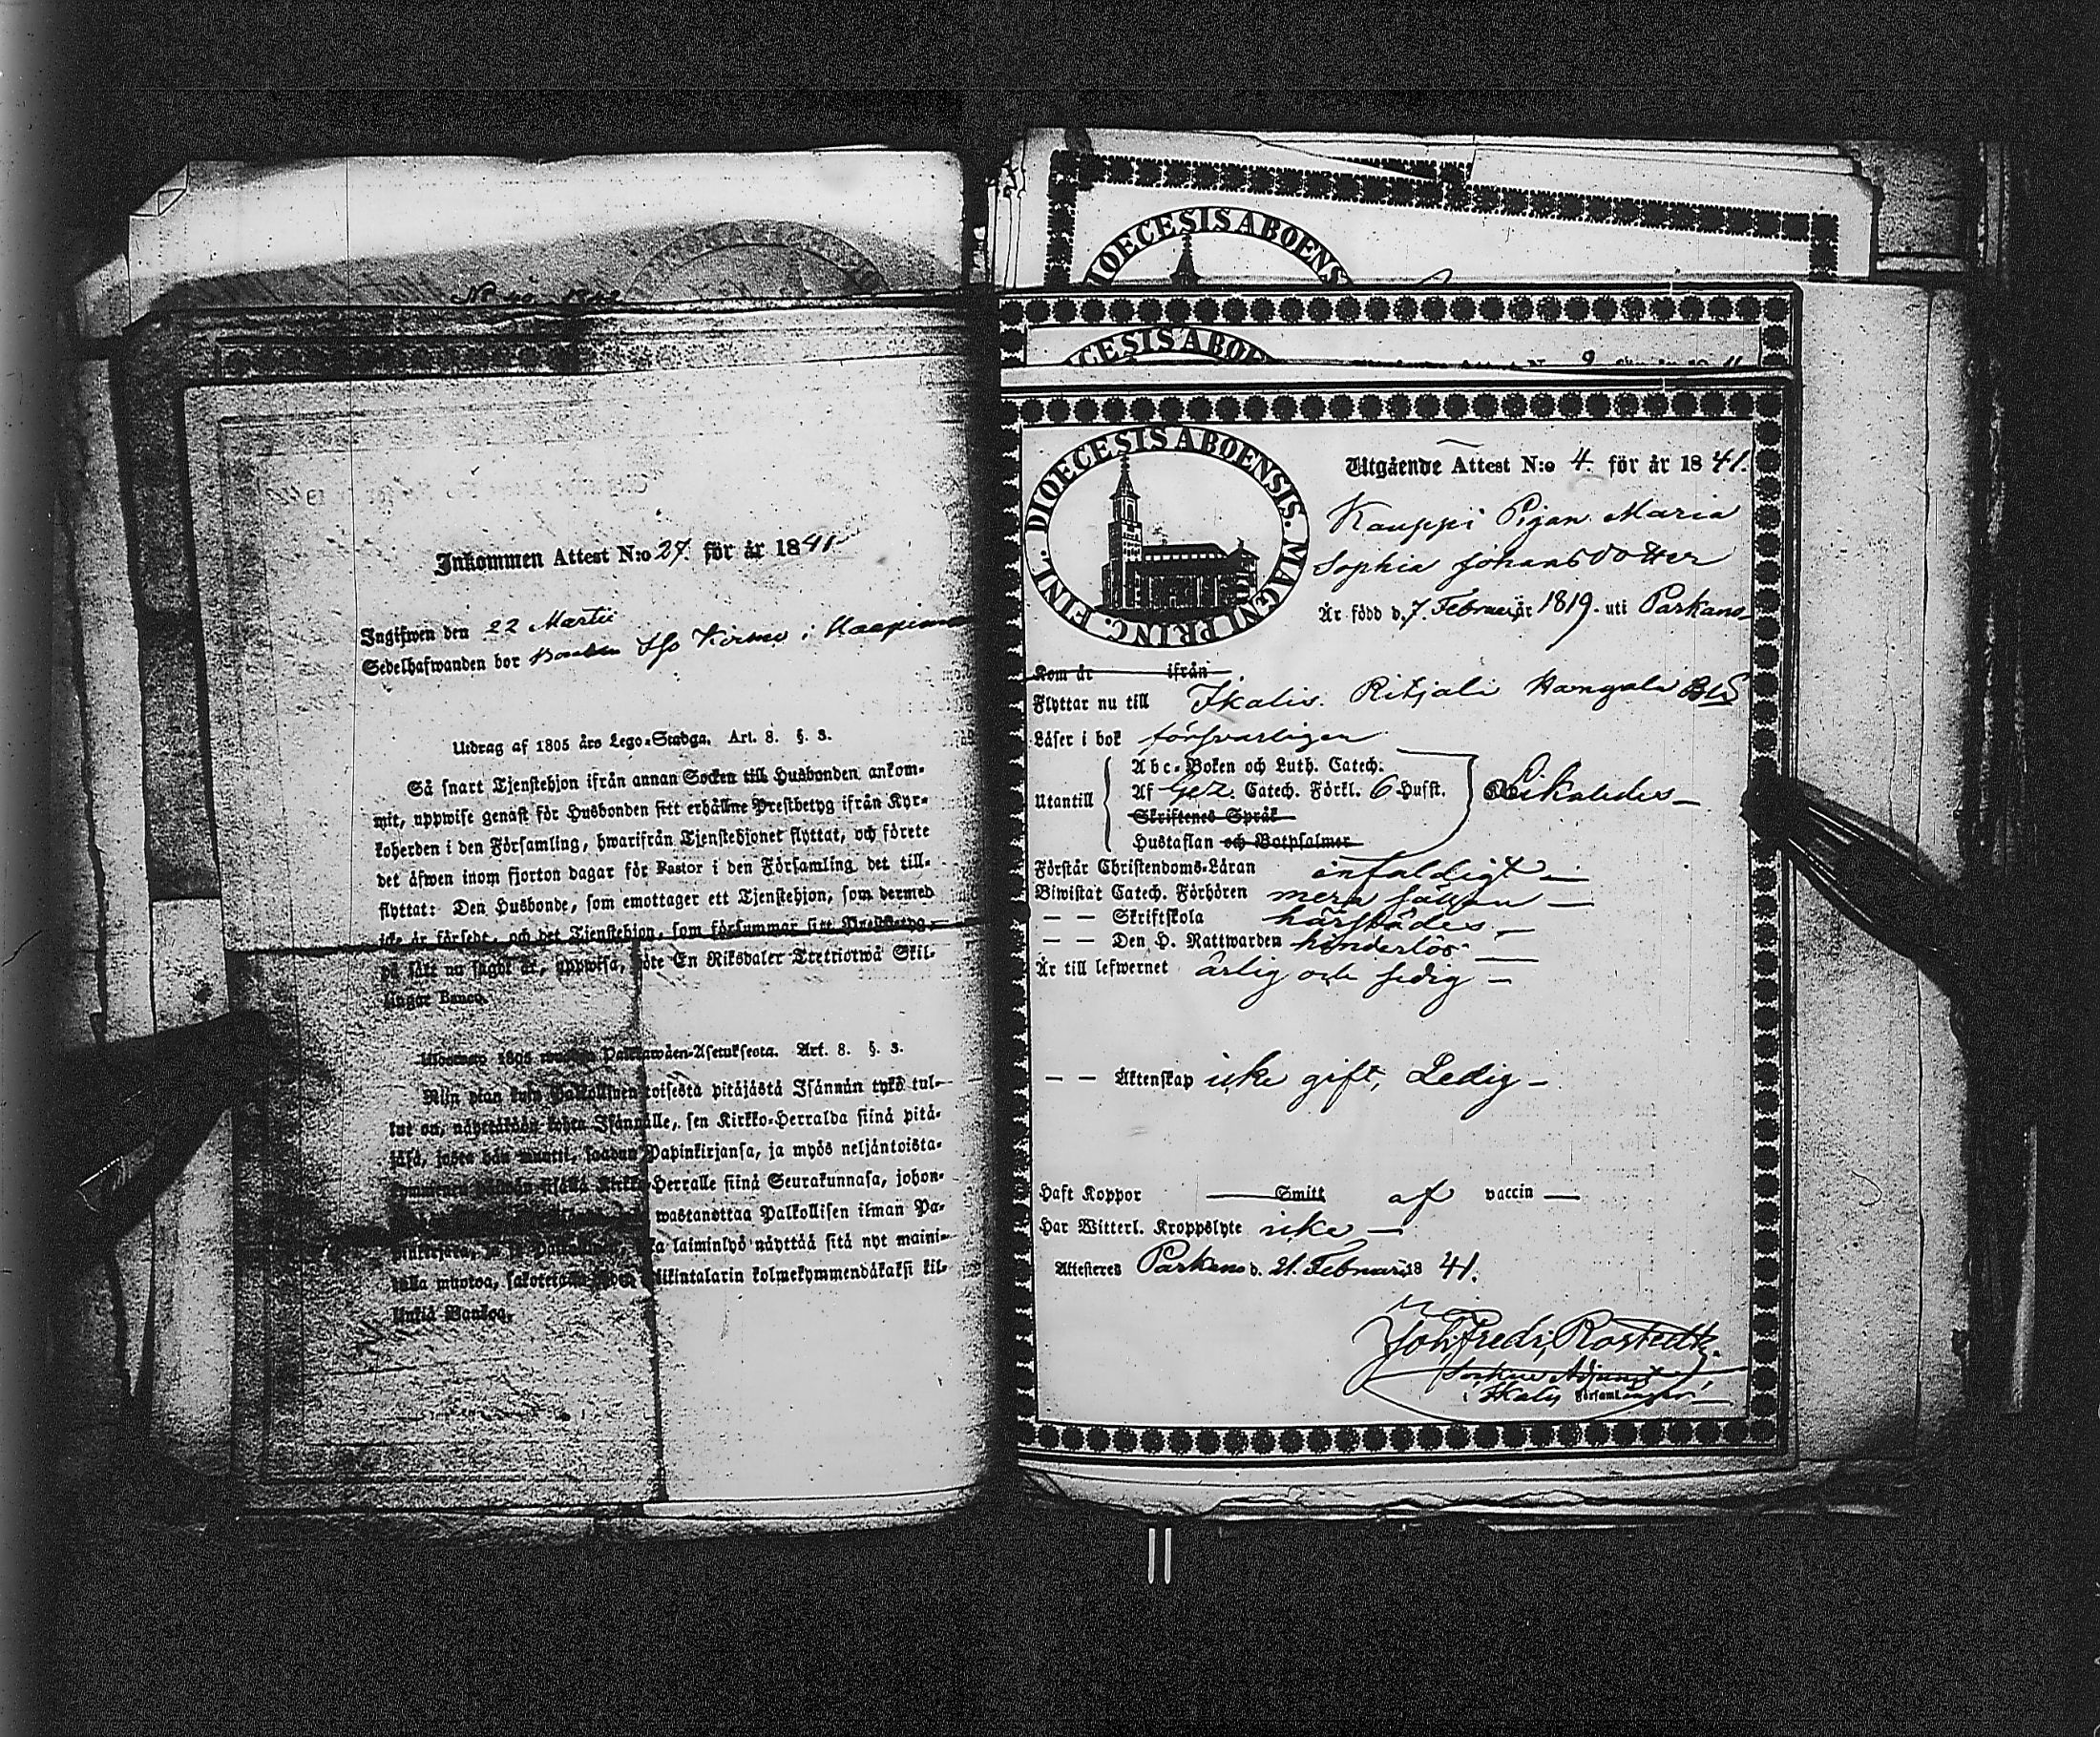 Inkommen Attest N:o 27. för år 1841
Ingifwen den 22 Martii
Sedelhafwanden bor i
Utdrag af 1805 års Lego-Stadga. Art. 8. §. 3.
Så snart Tjenstehjon ifrån annan Socken till Husbonden ankom-
mit, uppwise genast för Husbonden sitt erhållne Prestbetyg ifrån Kyr-
koherden i den Församling, hwarifrån Tjenstehjonet flyttat, och förete
det äfwen inom fjorton dagar för Pastor i den Församling det till-
flyttat: Den Husbonde, som emottager ett Tjenstehjon, som dermed
icke är försedt, och det Tjenstehjon, som försummar sitt Prestbetyg
på sätt nu sagdt är, uppwisa, böte En Riksdaler Trettiotwå Skil-
lingar Banco.
1805 Palkkawäen-Asetuksesta. Art. 8. §. 3.
Niin pian kuin Palkollinen toisesta pitäjästä Isännän tykö tul-
lut on, Isännälle, sen Kirkko-Herralda siinä pitä-
jäsä, josta hän muutti, saadun Papinkirjansa, ja myös neljäntoista-
kymmenen Kirkko-Herralle siinä Seurakunnasa, johon-
wastanottaa Palkollisen ilman Pa-
pinkirjata, laiminlyö näyttää sitä nyt maini-
tulla muotoa, Riikintalarin kolmekymmendäkaksi kil-
linkiä Bankoa.
DIOECESIS ABOENS
CESIS ABOE
DIOECESIS ABOENSIS. MAGNI PRINC. FINL.
Utgående Attest N:o 4. för år 1841.
Kauppi Pigan Maria
Sophia Johansdotter
Är född d. 7. Februari år 1819. uti Parkano
Kom år ifrån
Flyttar nu till Ikalis. Ritjali Hangala
Läser i bok försvarligen
Abc-Boken och Luth. Catech.
Utantill Af Gez. Catech. Förkl. 6 Hufst.
Skriftenes Språk
Hustaflan och Botpsalmer
Förstår Christendoms-Läran enfaldigt —
Biwistat Catech. Förhören mera sällan —
— — Skriftskola härstädes —
— — Den H. Nattwarden hinderlös —
Är till lefwernet ärlig och sedig —
— — Äktenskap icke gift, Ledig —
Haft Koppor — Smitt af vaccin —
Har Witterl. Kroppslyte icke —
Attesteras Parkano d. 21. Februari 1841.
Joh. Fredr. Rostedt.
i Ikalis Församling